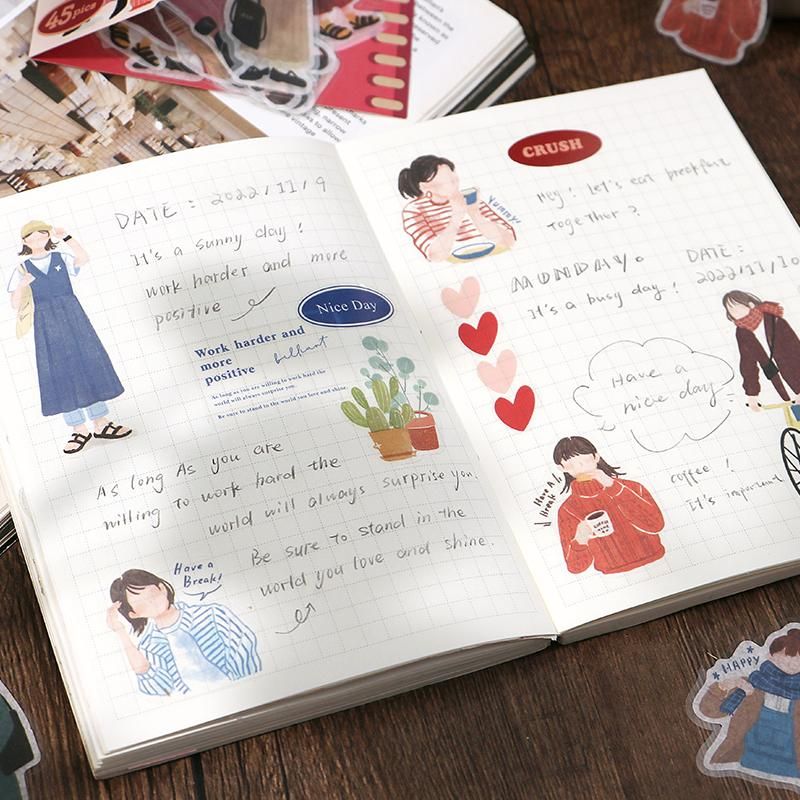 45pics
DATE : 2022/11/9
It's a sunny day !
work harder and more
positive
Nice Day
Work harder and
more
positive
brilliant
As long as you are willing to work hard the
world will always surprise you.
Be sure to stand to the world you love and shine.
As long As you are
willing To work hard the
world will always surprise you.
Be sure to stand in the
world you love and shine.
Have a
Break!
CRUSH
Yummy!
Hey ! let's eat breakfast
together ?
MONDAY.
DATE :
2022/11/10
It's a busy day !
Have a
nice day
Have A
Break
coffee !
It's important
HAPPY